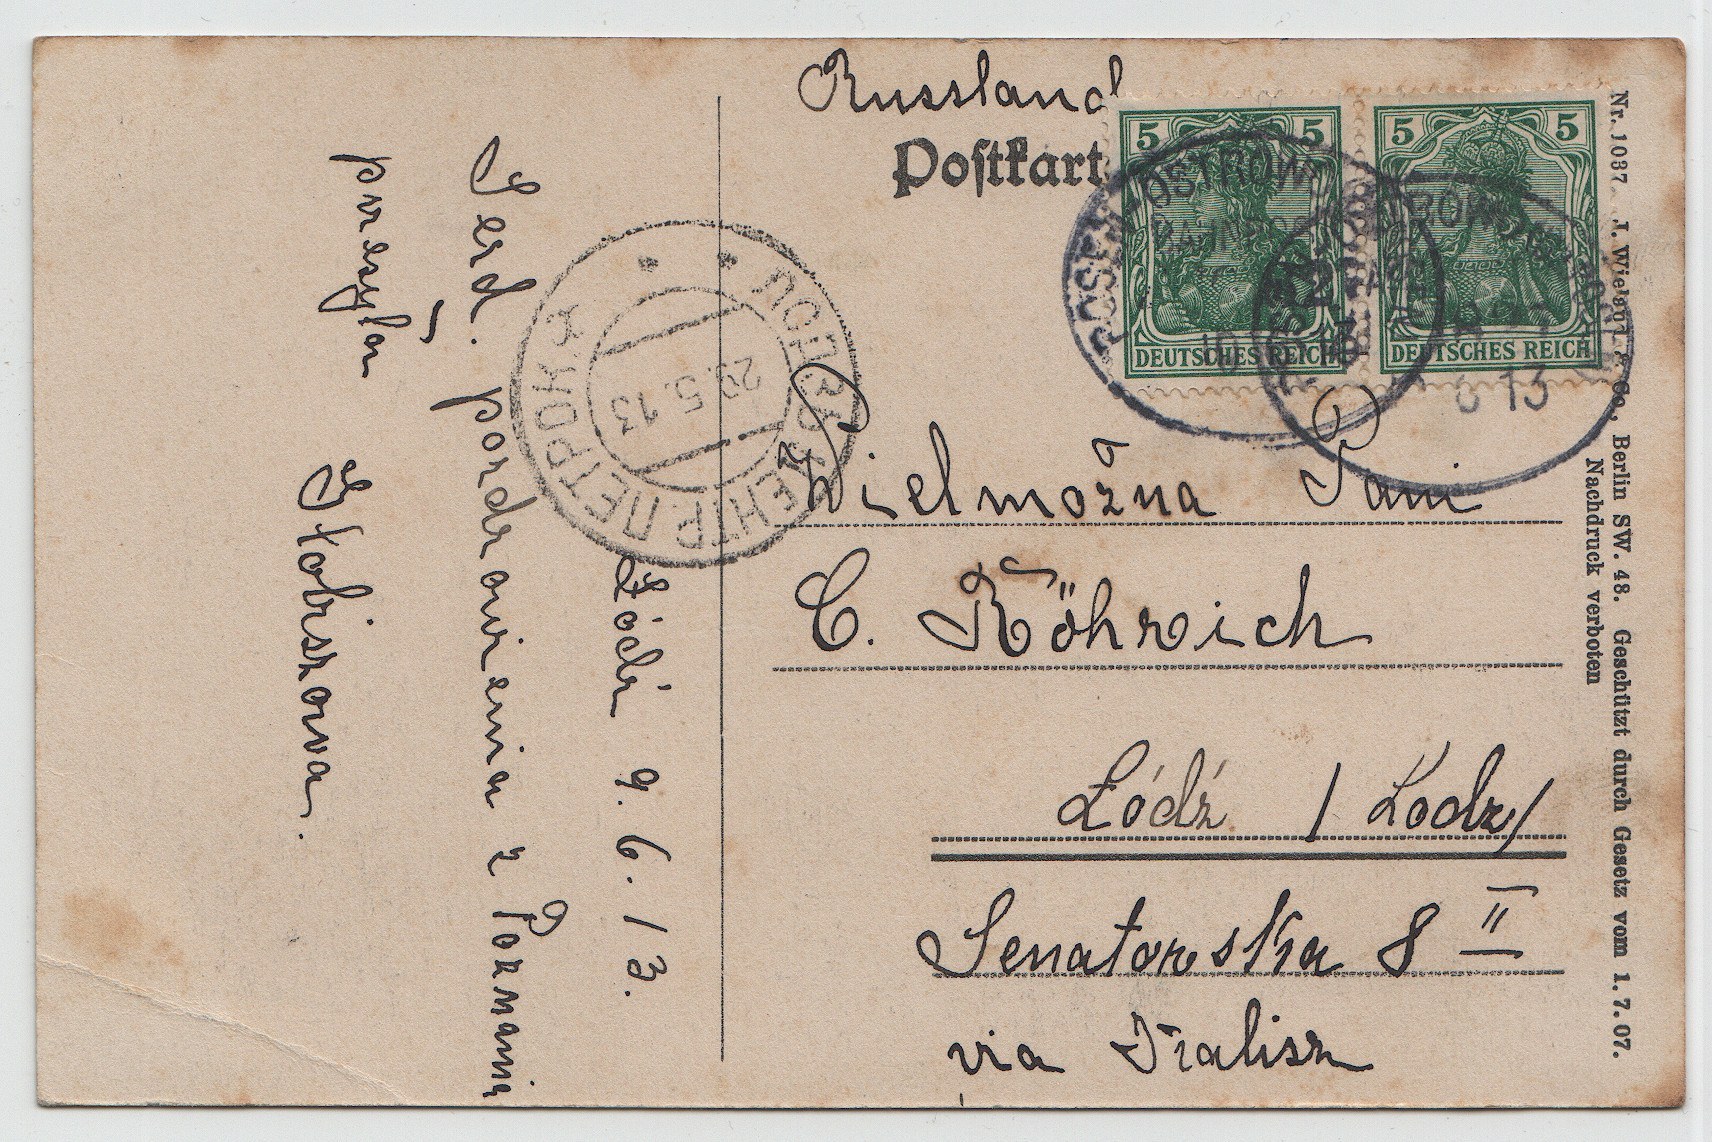 Russland
Postkart
5 5
5 5
DEUTSCHES REICH
DEUTSCHES REICH
OSTROW
13
29.5.13
ЛОДЗЬ
ЦЕНТР. ПЕТРОК.
Wielmożna Pani
C. Röhrich
Łódź /Lodz/
Senatorska 8 II
via Kalisz
Łódź 9. 6. 13.
Serd. pozdrowienia z Poznania
przesyła
Stobiszowa.
Nr. 1037. J. Wiesner & Co., Berlin SW. 48. Geschützt durch Gesetz vom 1. 7. 07.
Nachdruck verboten